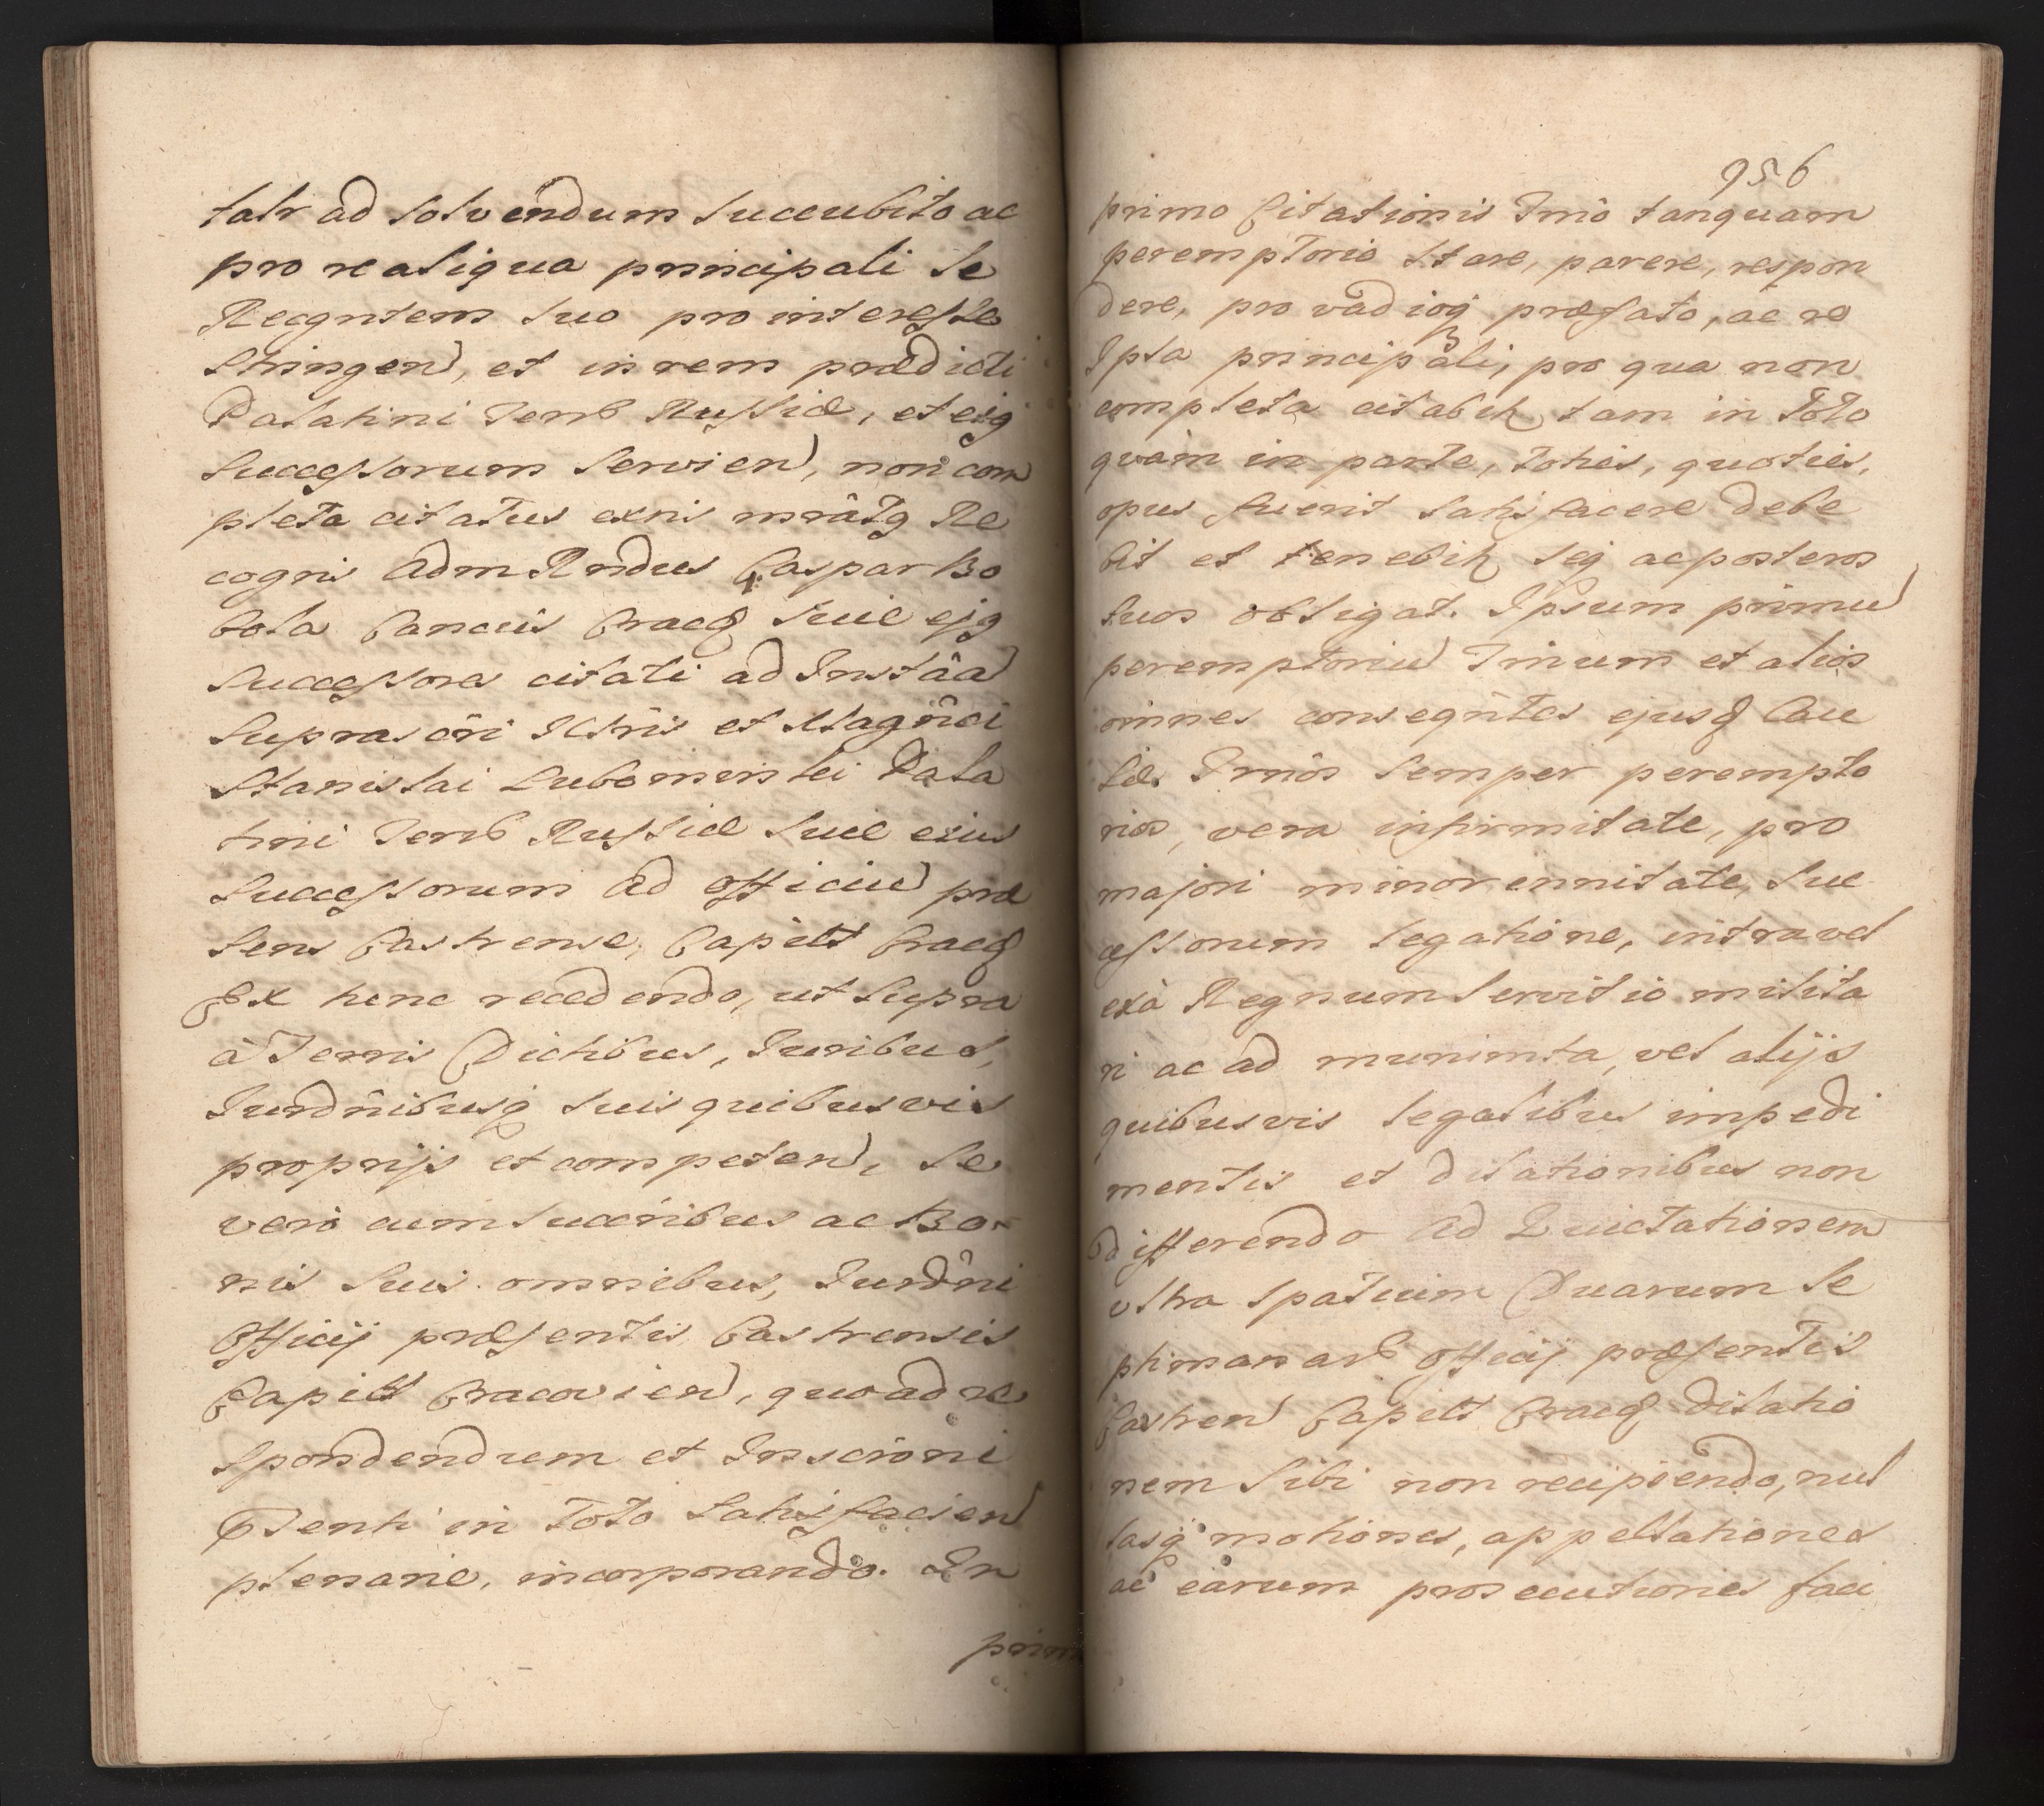 tatr ad solvendum succubito ac
pro re aliqua principali se
Recgntem suo pro interesse
stringen, et in rem prædicti
Palatini Terrȝ Russiæ, et eiq
successorum servien, non com
pleta citatus exnis mrâtq Re
cogns Adm Rndus Caspar Bo
bola Cancus Cracȝ sui ejq
successores citati ad Instâa
suprascri Illris et Magnci
Stanislai Lubomirski Pala
tini Terrȝ Russiæ suæ eius
successorum ad officiu præ
sens Castrense, Capielt Cracȝ
Ex hinc recedendo, ut supra
à Terris Dictibus, Juribus,
Jurdnibusq suis quibusvis
proprijs et competen, se
vero cum succribus ac Bo
nis suis omnibus, Jurdni
officij præsentis Castrensis
Capielt Cracovien, quo ad re
spondendum et Inscrôni
Pdenti in toto satisfacien
plenarie, incorporando. In
primo
956
primo Citationis Tmô tanquam
peremptorio stare, parere, respon
dere, pro vadioq præfato, ac re
Ipsa principali, pro qua non
completa citabitr tam in toto
quàm in parte, toties, quoties,
opus fuerit satisfacere debe
bit et tenebitr seq ac posteros
suos obligat. Ipsum primu
peremptoriu Tmum et alios
omnes conseqntes ejusȝ Cau
sæ Tmôs semper perempto
rios, vera infirmitate, pro
majori minorennitate, suc
cessorum legatione, intra vel
exà Regnum servitio milita
ri ac ad munimta, vel alijs
quibusvis legalibus impedi
mentis et dilationibus non
differendo ad Quietationem
ultra spatium Duarum Se
ptimanarȝ officij præsentis
Castren Capielt Cracȝ dilatio
nem sibi non recipiendo, nul
lasq motiones, appellationes
ac earum prosecutiones faci